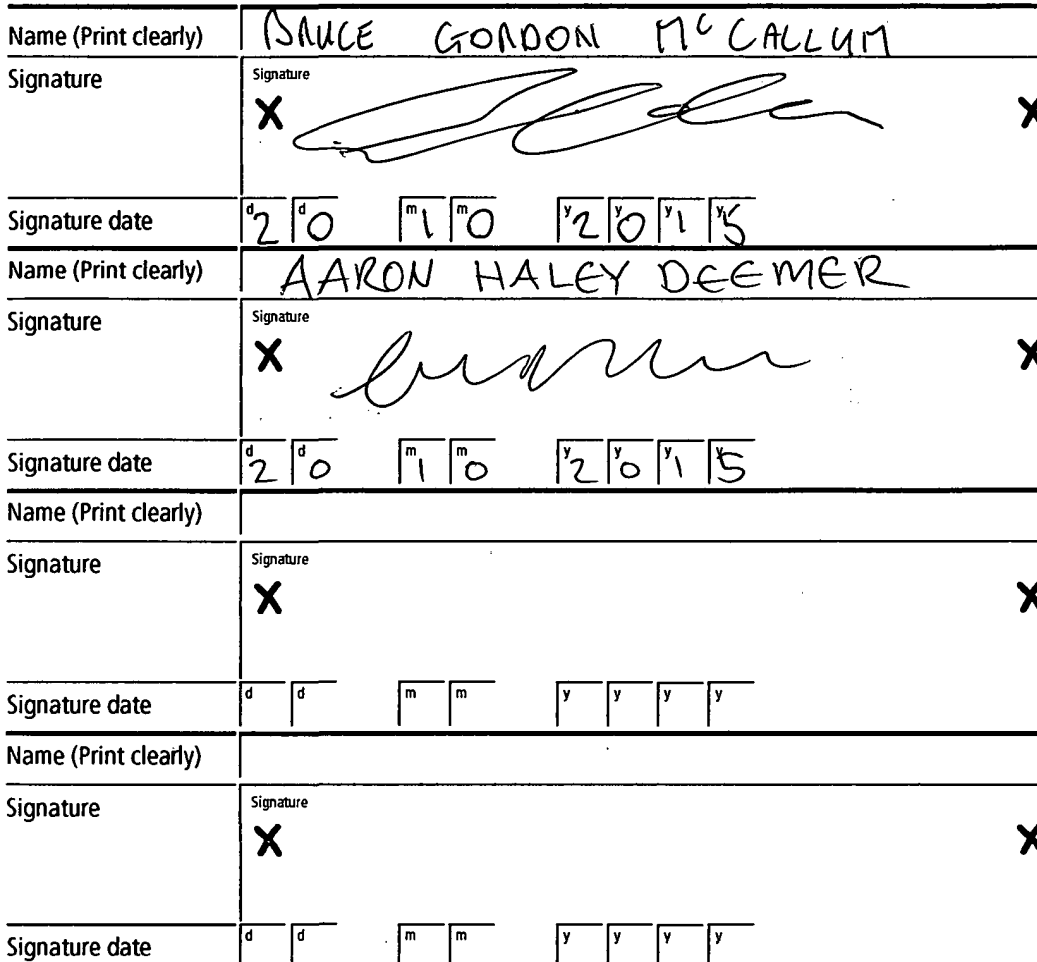 Name (Print clearly) BRUCE GORDON McCALLUM
Signature Signature
X X
Signature date d2 d0 m1 m0 y2 y0 y1 y5
Name (Print clearly) AARON HALEY DEEMER
Signature Signature
X X
Signature date d2 d0 m1 m0 y2 y0 y1 y5
Name (Print clearly)
Signature Signature
X X
Signature date d d m m y y y y
Name (Print clearly)
Signature Signature
X X
Signature date d d m m y y y y